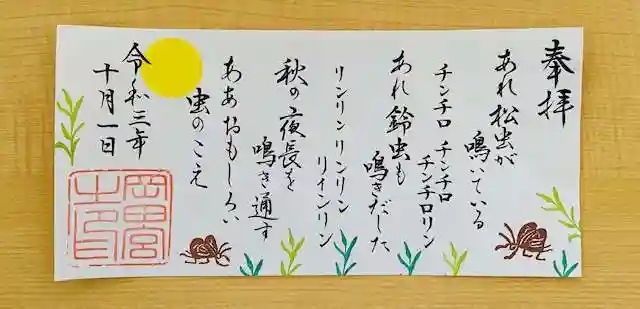 奉拝
あれ松虫が
鳴いている
チンチロ チンチロ
チンチロリン
あれ鈴虫も
鳴きだした
リンリンリンリン
リインリン
秋の夜長を
鳴き通す
ああおもしろい
虫のこえ
令和三年
十月一日
岡田宮